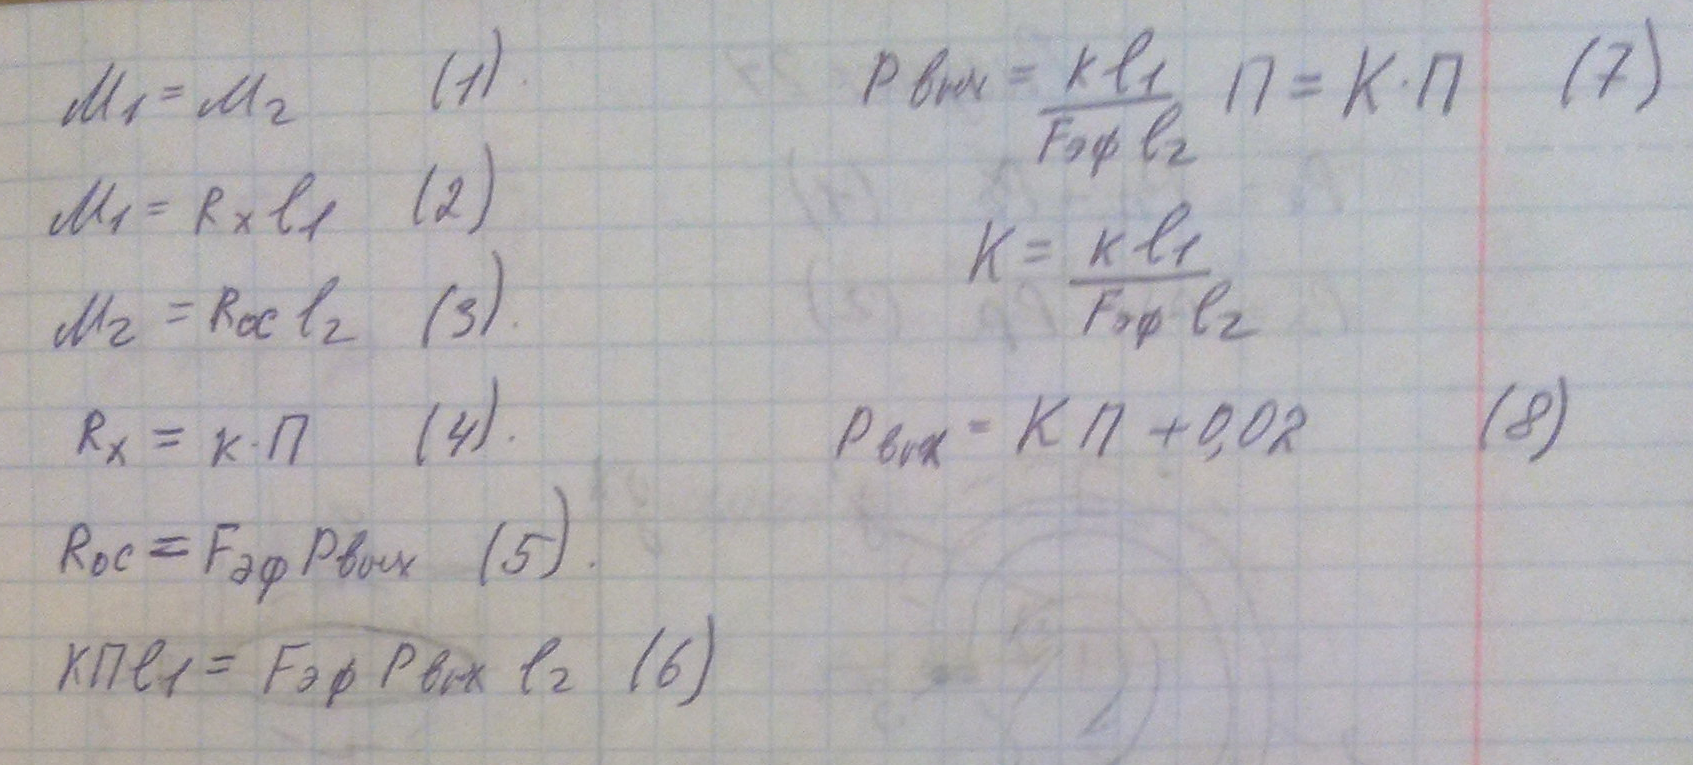 M₁ = M₂ (1).
M₁ = Rₓ l₁ (2)
M₂ = Rос l₂ (3).
Rₓ = к·П (4).
Rос = Fэф Pвых (5).
КПl₁ = Fэф Pвых l₂ (6)
Pвых = кl₁ / Fэф l₂ П = К·П (7)
К = кl₁ / Fэф·l₂
Pвых = КП + 0,02 (8)